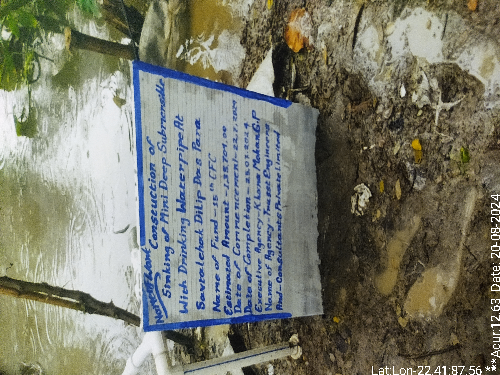 Name of Work Constuction of
Sinking of Mini Deep Submersible
With Drinking Waterpipe At
Savralchak Dilip Das Para
Name of Fund - 15th CFC
Estimated Amount -
Date of Commencement - 22.7.2024
Date of Completion - 28.07.2024
Executive Agency - Khana Mohan G.P
Name of Agency -
Consultancies Private Limited
Lat Lon-22.41.87.56 **
**Acur.12.63 Date. 20-08-2024